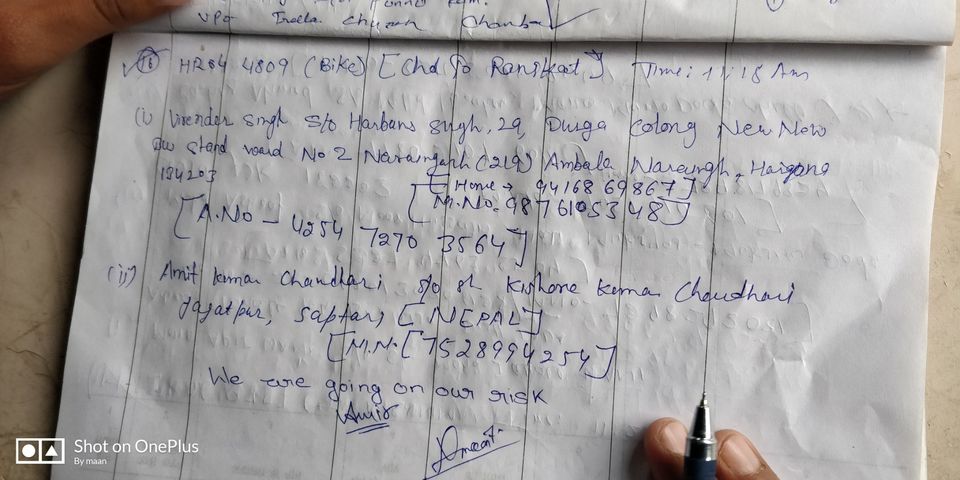 VPO Chamba
(16) HR 04 4809 (Bike) [Chd to Ranikhat] Time: 11:18 Am
(i) Virender Singh S/o Harbans Singh, 29, Durga Colony New Now
stand ward No 2 Naraingarh (219) Ambala Naraingh, Haryana
134203 [Home → 94168 69867]
[M.No. 9876105348]
[A.No - 4254 7270 3564]
(ii) Amit kumar Chaudhari s/o sh Kishore kumar Choudhari
Jagatpur, Saptari, [NEPAL]
[M.N. [7528994254]
We are going on our risk
Amit
Shot on OnePlus
By maan